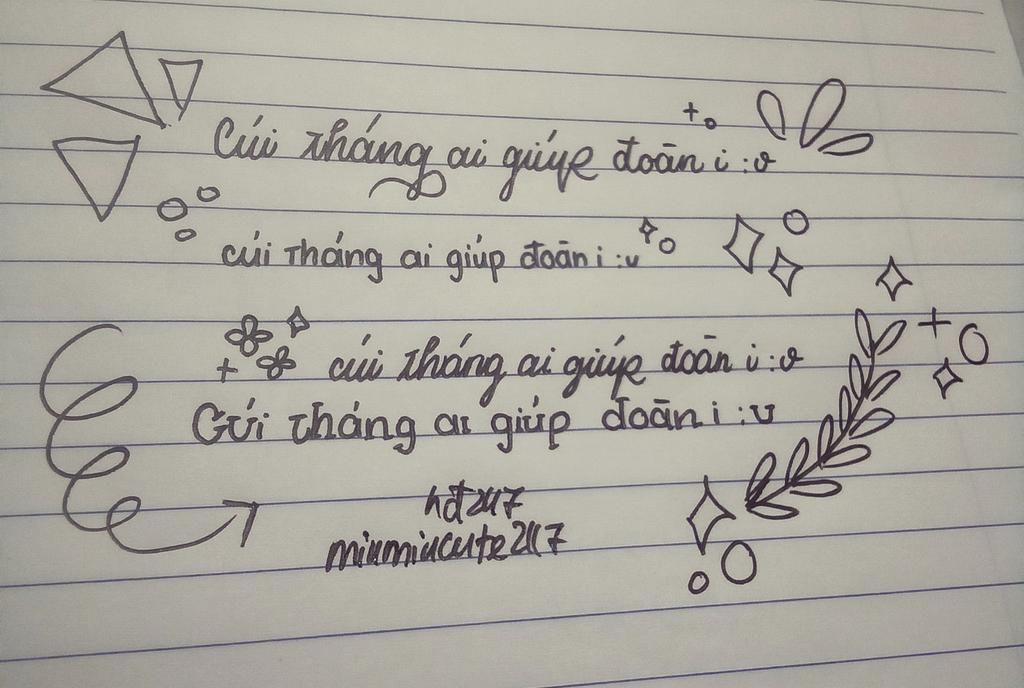 Cúi tháng ai giúp đoān i :v
cúi tháng ai giúp đoān i :v
cúi tháng ai giúp đoān i :v
Gúi tháng ai giúp đoān i :v
hđ247
miumiucute247